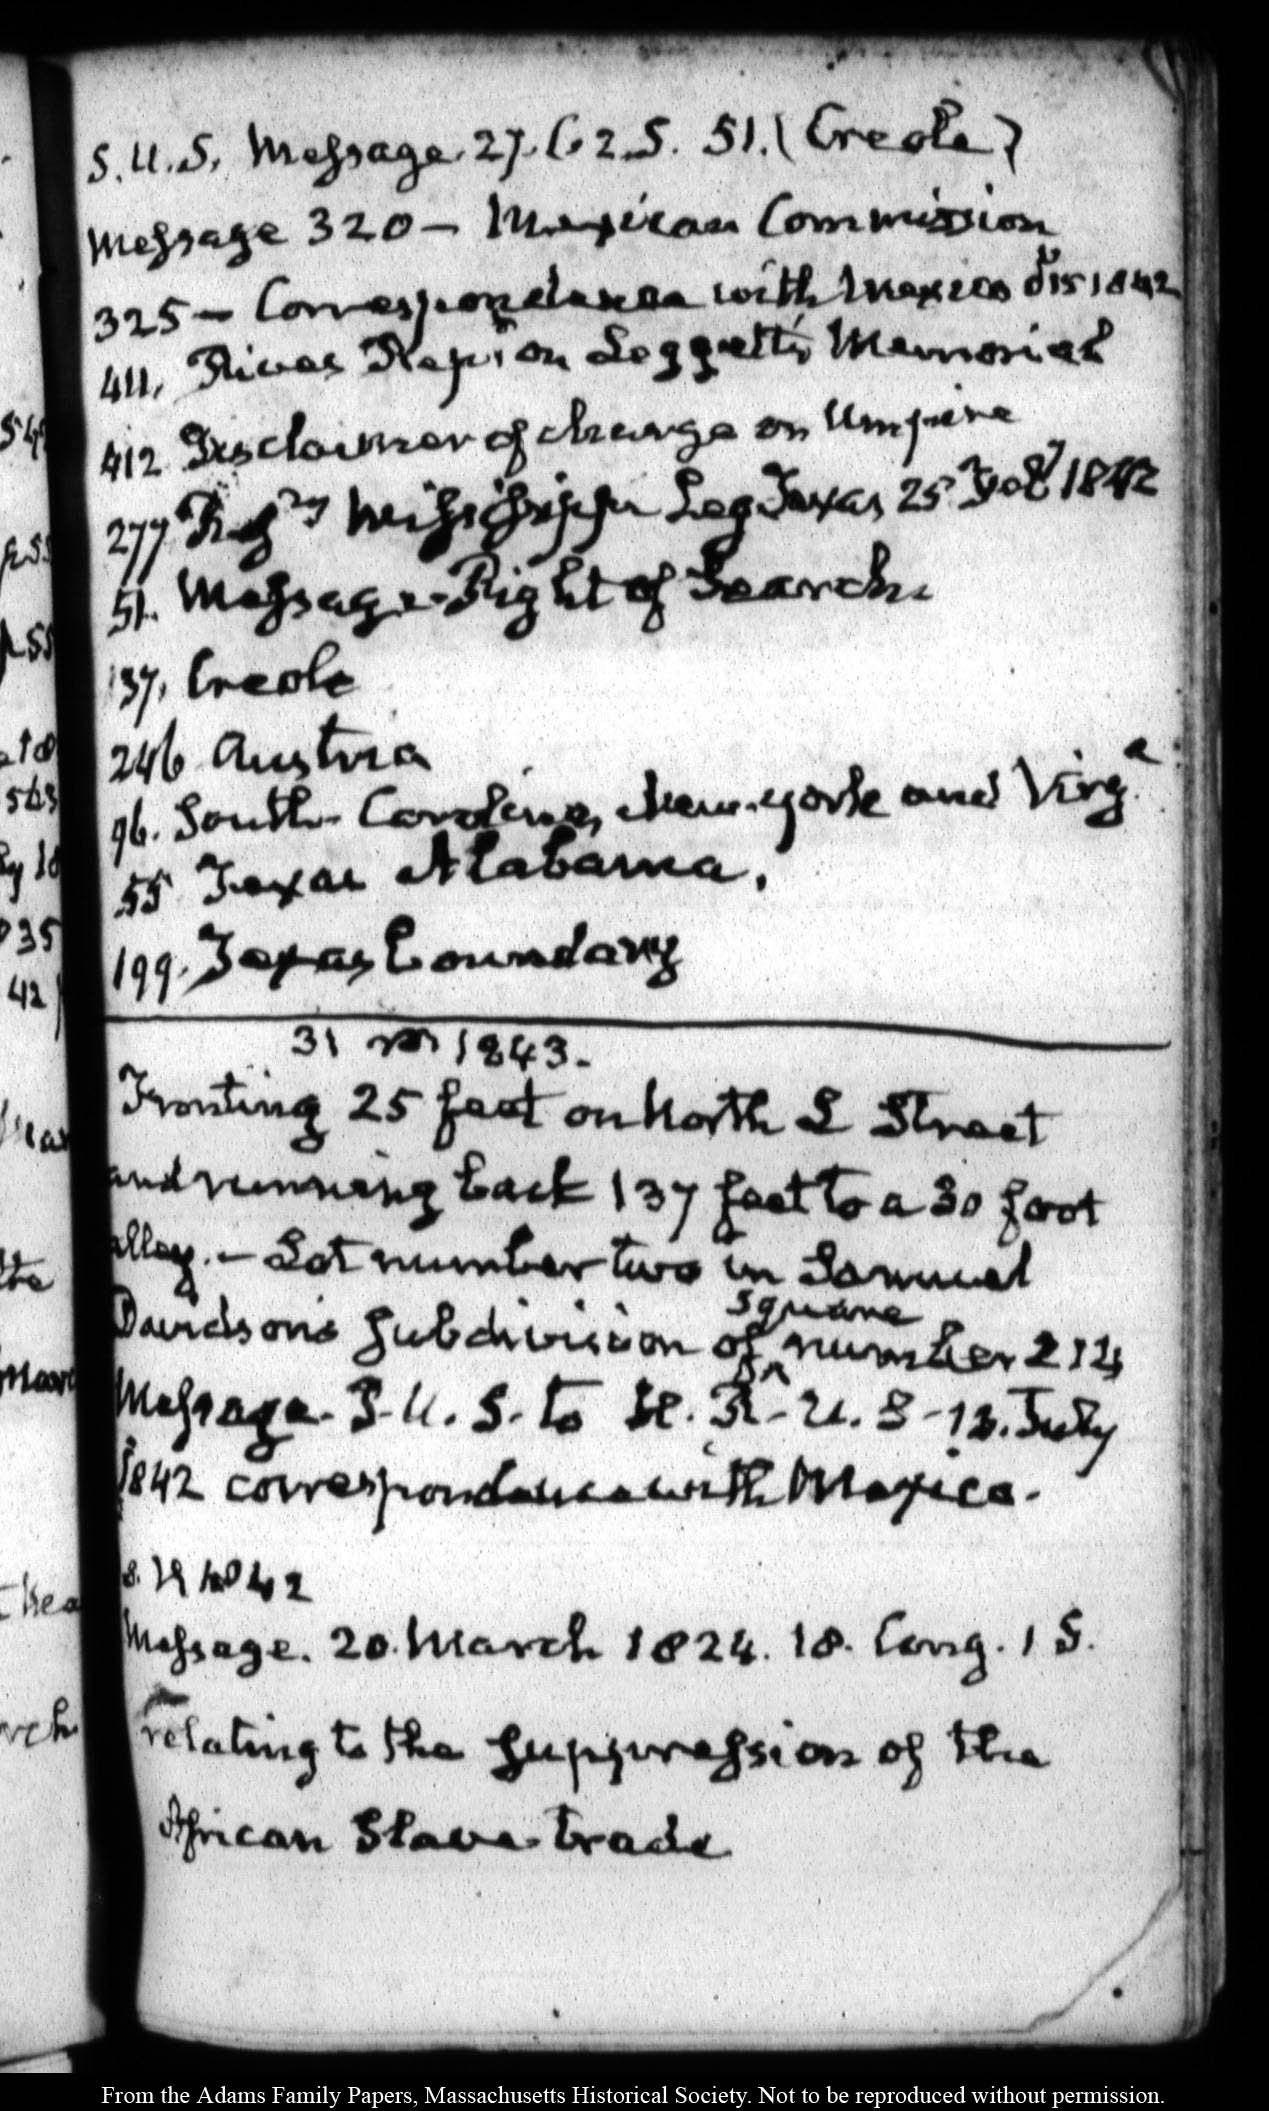 S.U.S. Message. 27. C. 2. S. 51. (Creole)
Message 320 — Mexican Commission
325 — Correspondence with Mexico 1842
411. Rives Rep. on Leggett's Memorial
412 Disclaimer of charge on Umpire
277 Mississippi Leg Texas 25 1842
51. Message - Right of Search.
137. Creole
246 Austria
96. South Carolina, New-york and Virgª
55 Texas Alabama.
199. Texas boundary
31 1843.
Fronting 25 feet on North L Street
and running back 137 feet to a 30 foot
alley. — Lot number two in Samuel
square
Davidson's subdivision of number 214
Message. P. U. S. to H. R. U. S - 13. July
1842 correspondence with Mexico.
42
Message. 20. March 1824. 18. Cong. 1 S.
relating to the suppression of the
African Slave-trade
54
p 55
p 55
563
35
42
the
From the Adams Family Papers, Massachusetts Historical Society. Not to be reproduced without permission.